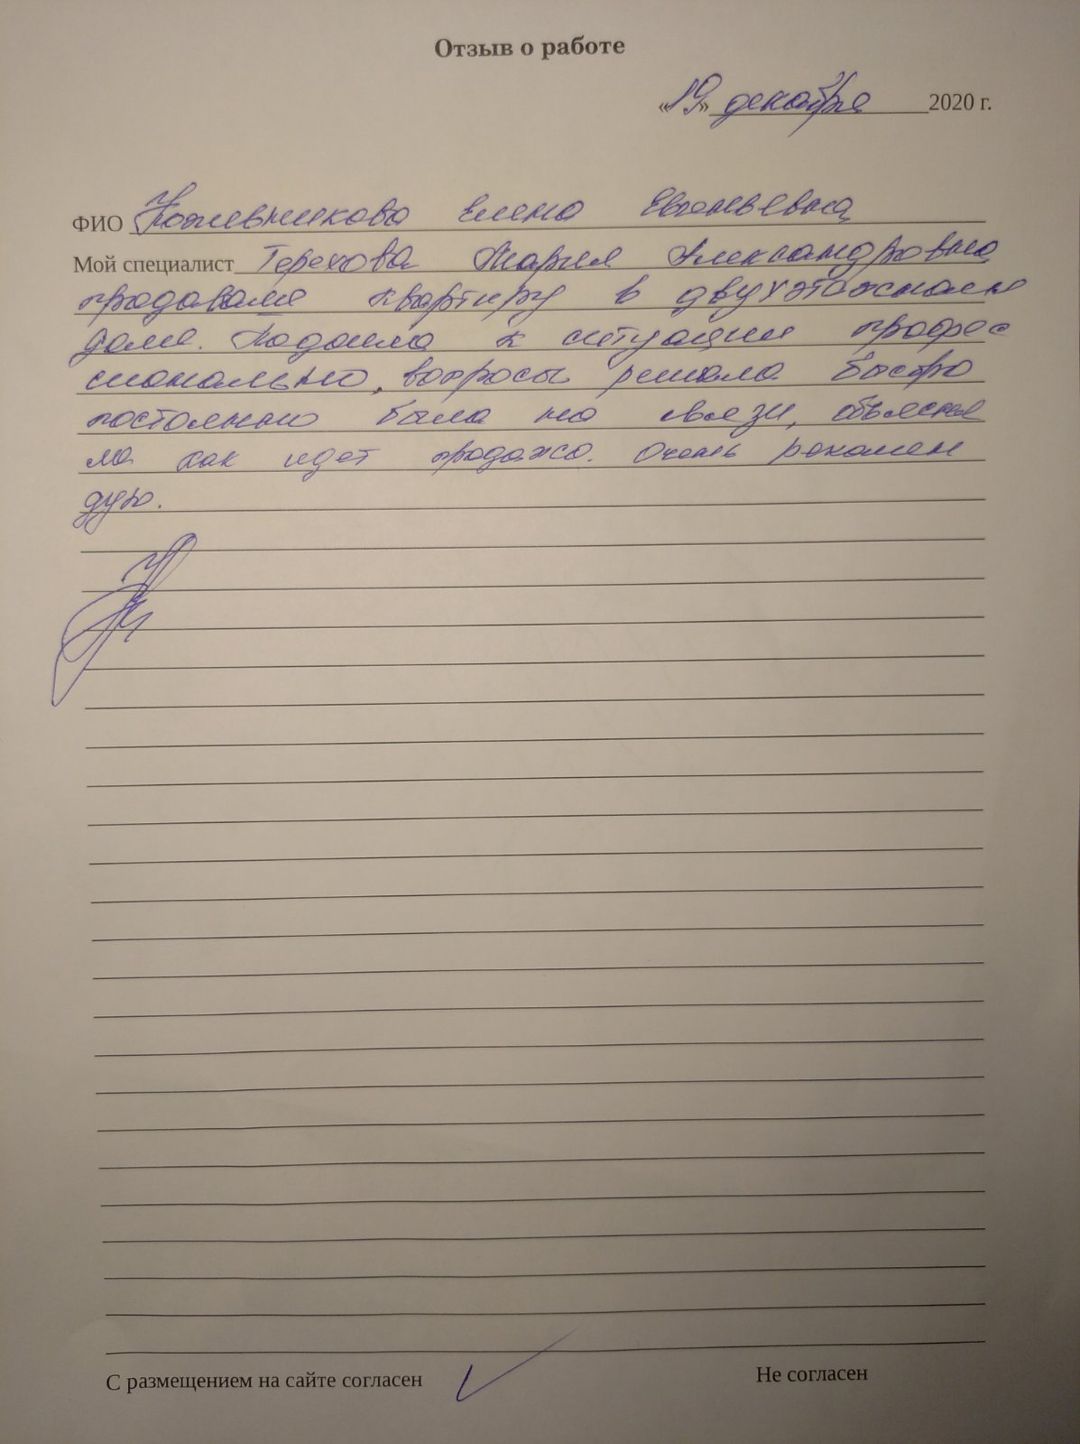 Отзыв о работе
«19» декабря 2020 г.
ФИО Кожевникова Елена Евгеньевна
Мой специалист Терехова Мария Александровна
продавали квартиру в двухэтажном
доме. Подошла к ситуации профес
сионально, вопросы решала быстро
постоянно была на связи, объясня
ла как идет продажа. Очень рекомен
дую.
С размещением на сайте согласен Не согласен